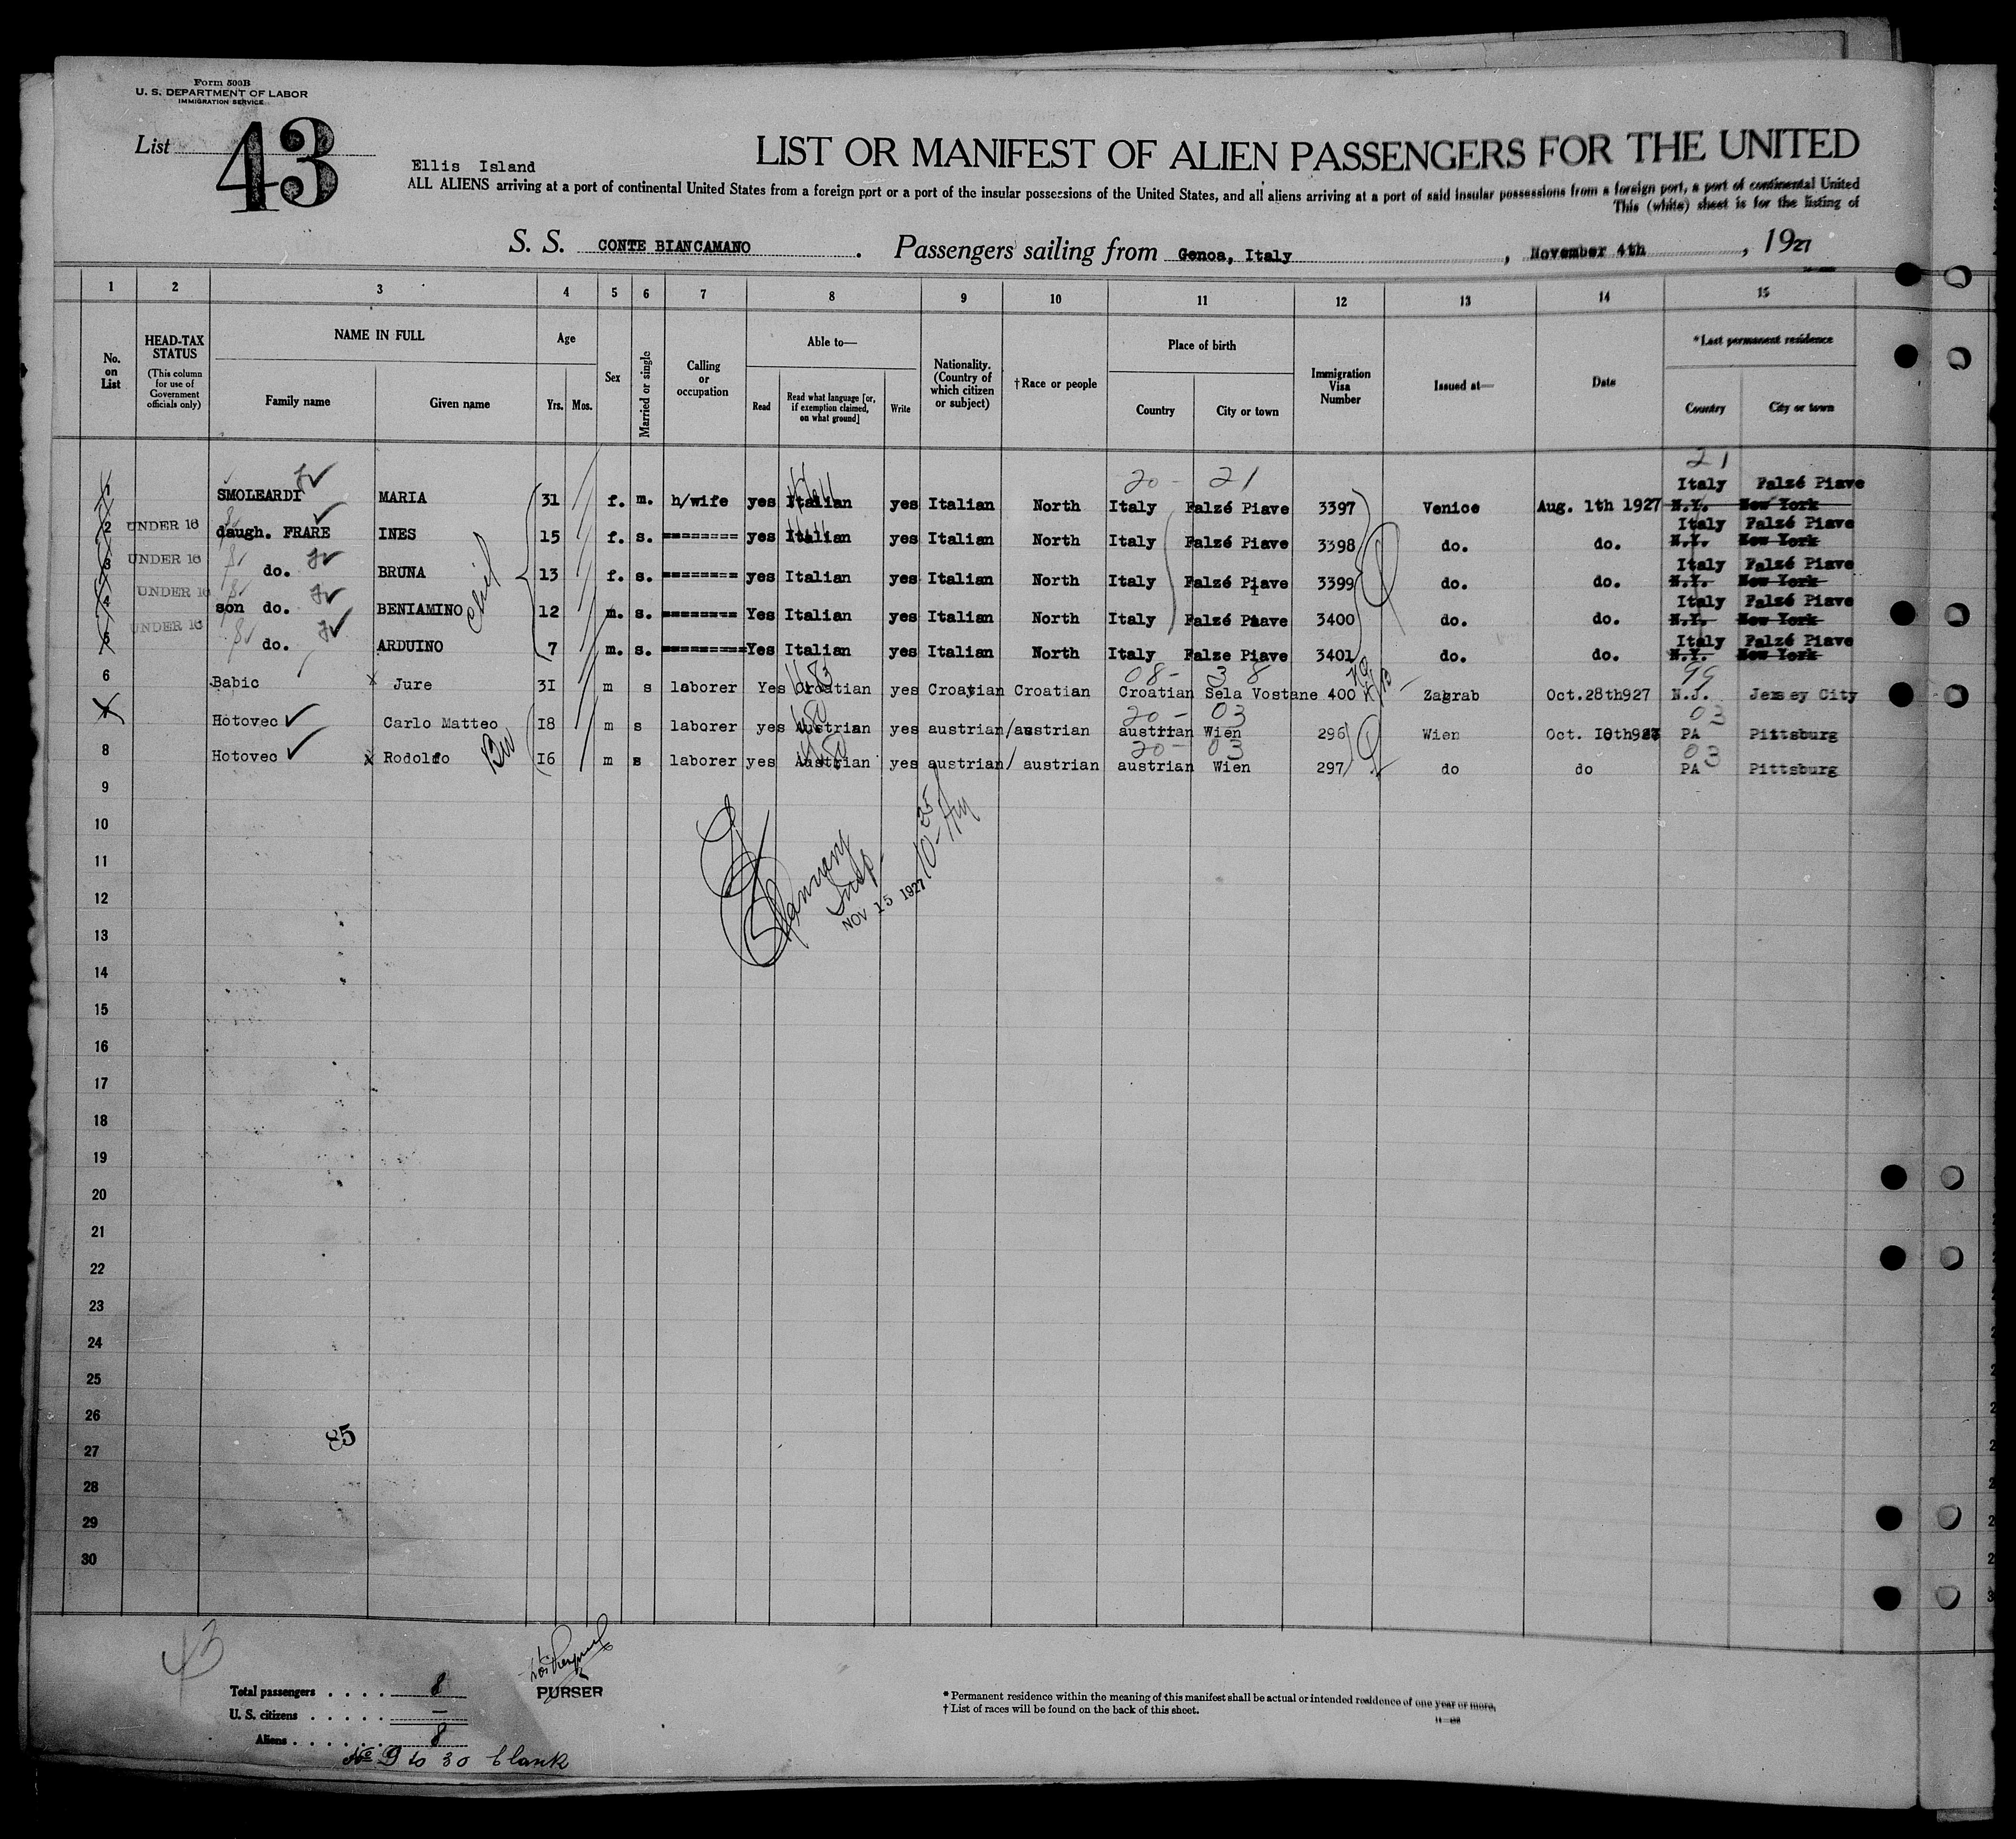 Form 500B
U. S. DEPARTMENT OF LABOR
IMMIGRATION SERVICE
List 43
Ellis Island
LIST OR MANIFEST OF ALIEN PASSENGERS FOR THE UNITED
ALL ALIENS arriving at a port of continental United States from a foreign port or a port of the insular possessions of the United States, and all aliens arriving at a port of said insular possessions from a foreign port, a port of continental United
This (white) sheet is for the listing of
S. S. CONTE BIANCAMANO. Passengers sailing from Genoa, Italy, November 4th, 1927
1 2 3 4 5 6 7 8 9 10 11 12 13 14 15
No. on List
HEAD-TAX STATUS
(This column for use of Government officials only)
NAME IN FULL
Family name Given name
Age
Yrs. Mos.
Sex
Married or single
Calling or occupation
Able to—
Read
Read what language [or, if exemption claimed, on what ground]
Write
Nationality. (Country of which citizen or subject)
†Race or people
Place of birth
Country City or town
Immigration Visa Number
Issued at—
Date
*Last permanent residence
Country City or town
20 - 21 21
Italy Falzé Piave
1 SMOLEARDI MARIA 31 f. m. h/wife yes Italian yes Italian North Italy Falzé Piave 3397 Venice Aug. 1th 1927 N.Y. New York
Italy Falzé Piave
2 UNDER 16 daugh. FRARE INES 15 f. s. ======== yes Italian yes Italian North Italy Falzé Piave 3398 do. do. N.Y. New York
Italy Falzé Piave
3 UNDER 16 do. BRUNA 13 f. s. ======== yes Italian yes Italian North Italy Falzé Piave 3399 do. do. N.Y. New York
Italy Falzé Piave
4 UNDER 16 son do. BENIAMINO 12 m. s. ======== Yes Italian yes Italian North Italy Falzé Piave 3400 do. do. N.Y. New York
Italy Falzé Piave
5 UNDER 16 do. ARDUINO 7 m. s. ========= Yes Italian yes Italian North Italy Falze Piave 3401 do. do. N.Y. New York
08- 38 99
6 Babic x Jure 3I m s laborer Yes Croatian yes Croatian Croatian Croatian Sela Vostane 400 Zagrab Oct.28th927 N.J. Jersey City
20- 03 03
Hotovec Carlo Matteo I8 m s laborer yes Austrian yes austrian/austrian austrian Wien 296 Wien Oct. I0th927 PA Pittsburg
20- 03 03
8 Hotovec x Rodolfo I6 m s laborer yes Austrian yes austrian/ austrian austrian Wien 297 do do PA Pittsburg
9
10
11
12
NOV 15 1927
13
14
15
16
17
18
19
20
21
22
23
24
25
26
85
27
28
29
30
43
Total passengers . . . . 8
U. S. citizens . . . . . —
Aliens . . . . . . . 8
No 9 to 30 blank
PURSER
* Permanent residence within the meaning of this manifest shall be actual or intended residence of one year or more.
† List of races will be found on the back of this sheet.